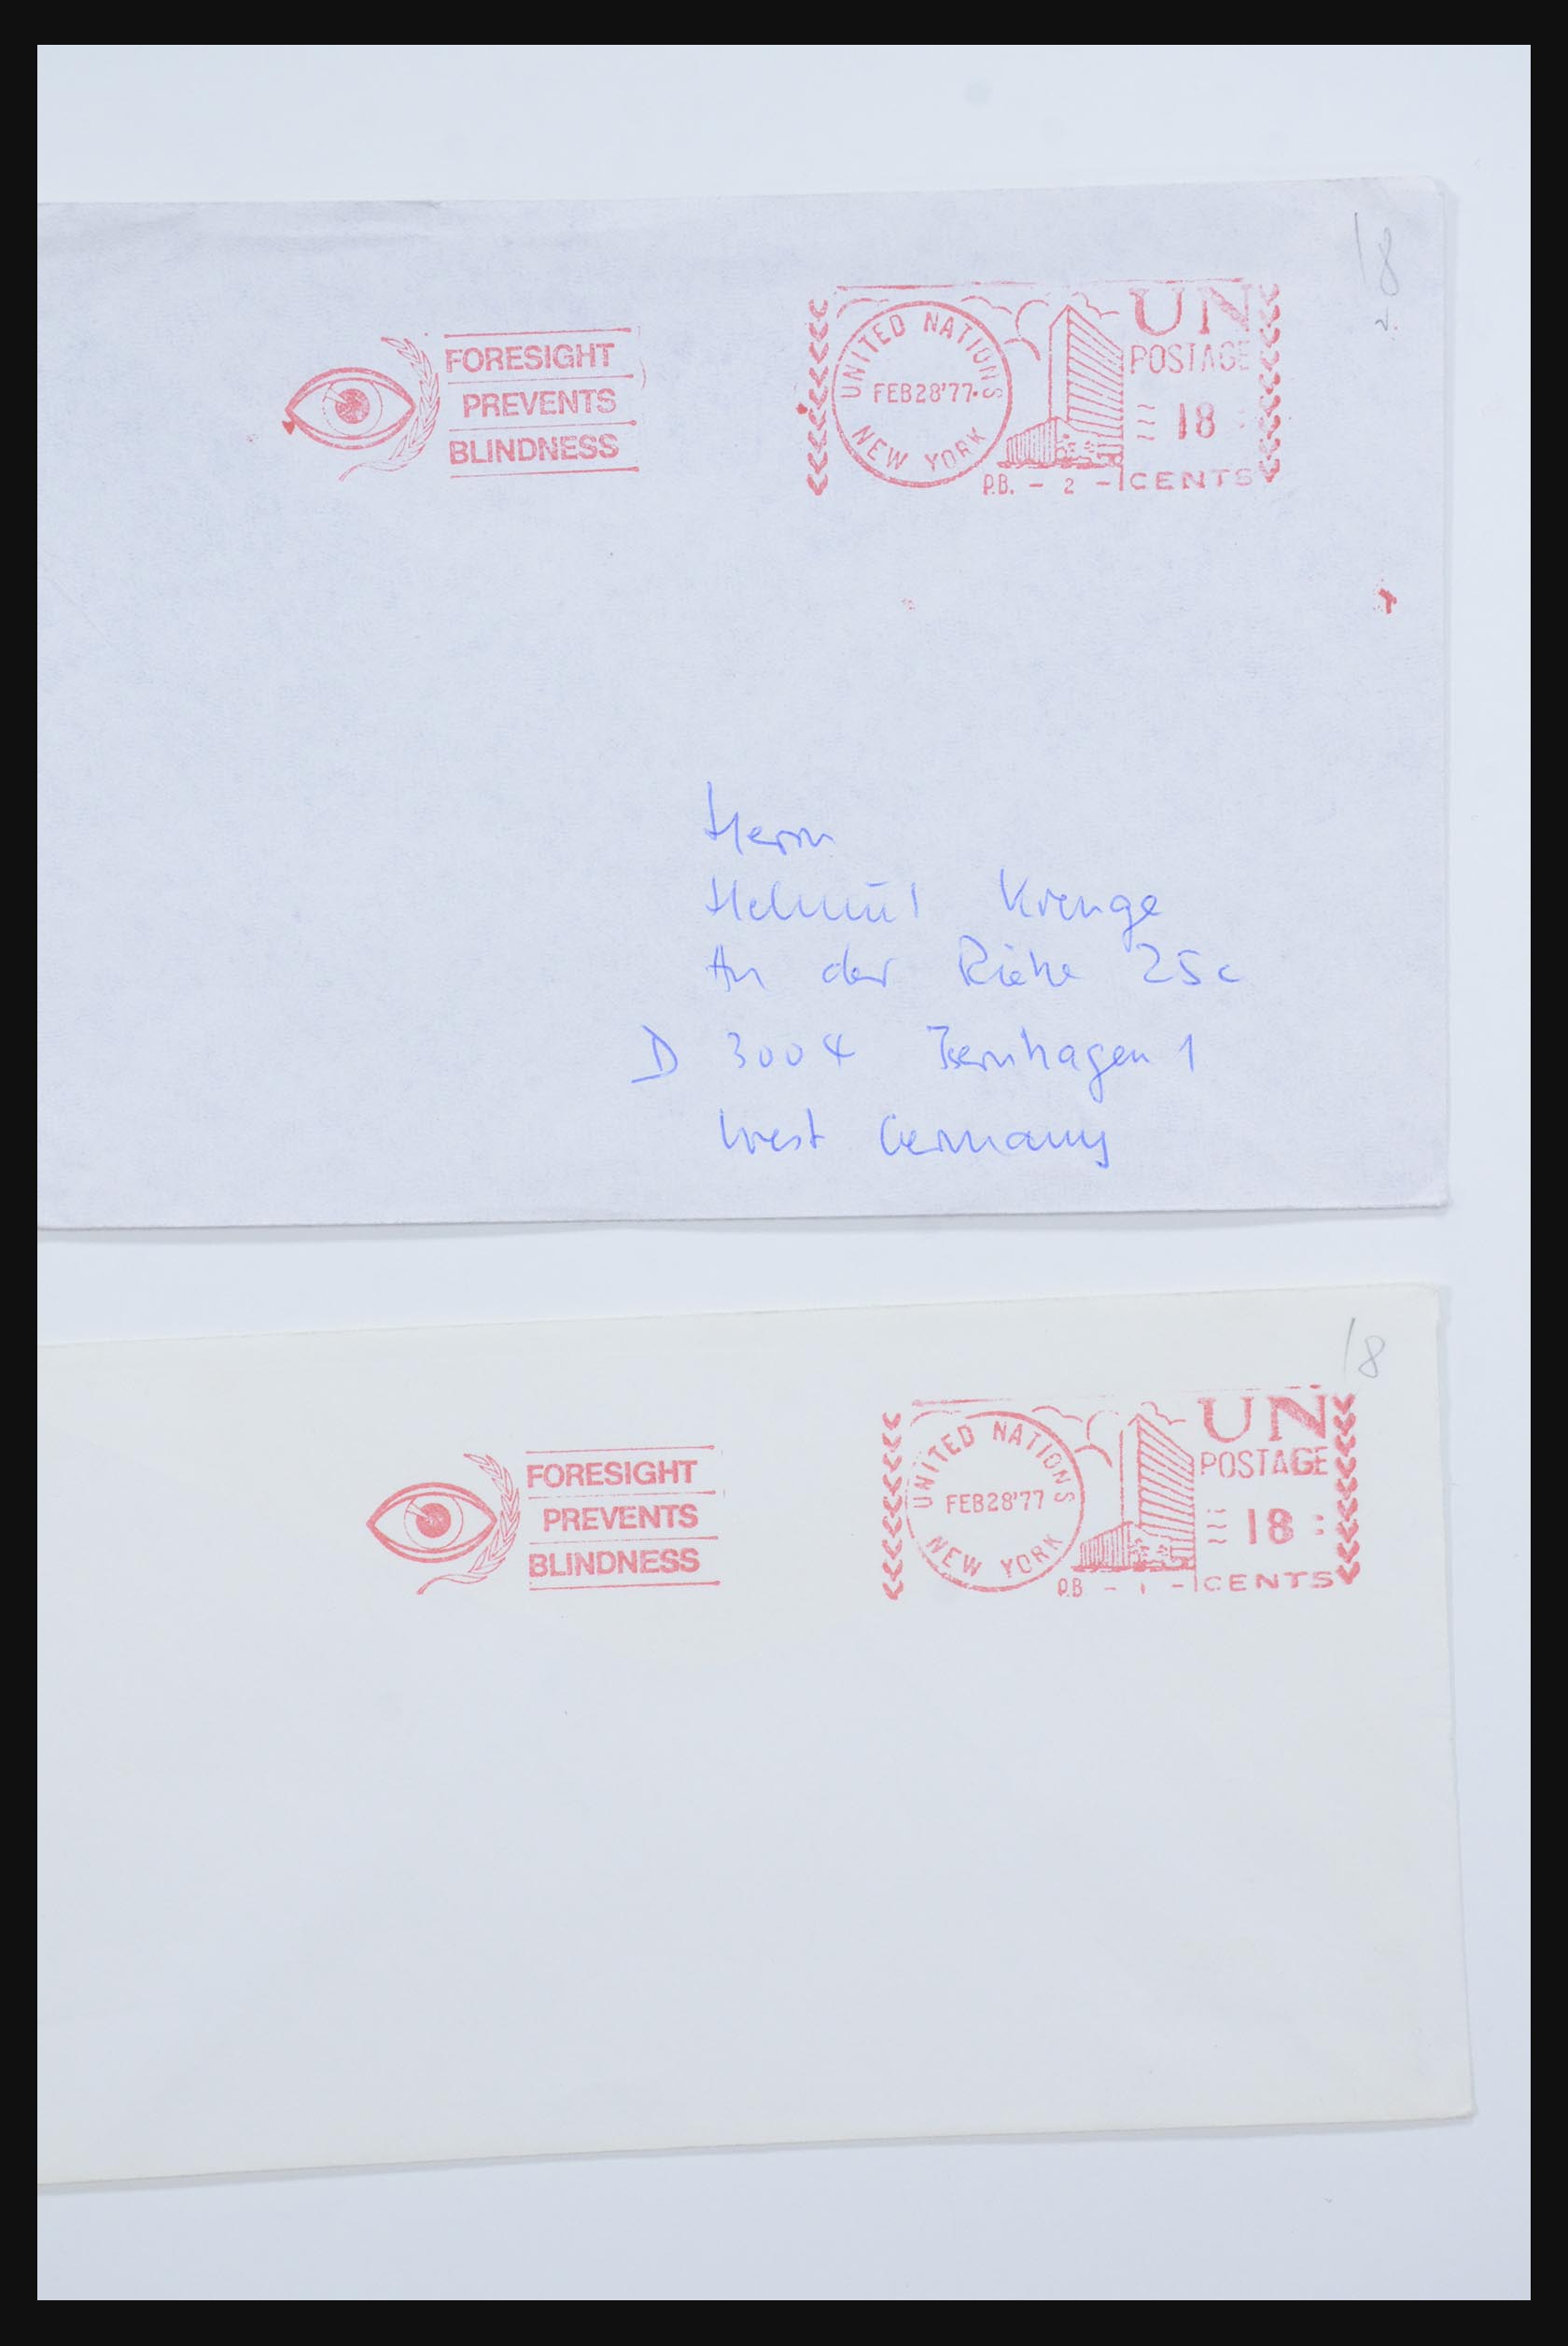 18
FORESIGHT
PREVENTS
BLINDNESS
UNITED NATIONS
FEB28'77
NEW YORK
UN
POSTAGE
18
CENTS
P.B. - 2 -
Herrn
Helmut Krenge
An der Riehe 25c
D 3004 Isernhagen 1
West Germany
18
FORESIGHT
PREVENTS
BLINDNESS
UNITED NATIONS
FEB28'77
NEW YORK
UN
POSTAGE
18
CENTS
P.B - 1 -